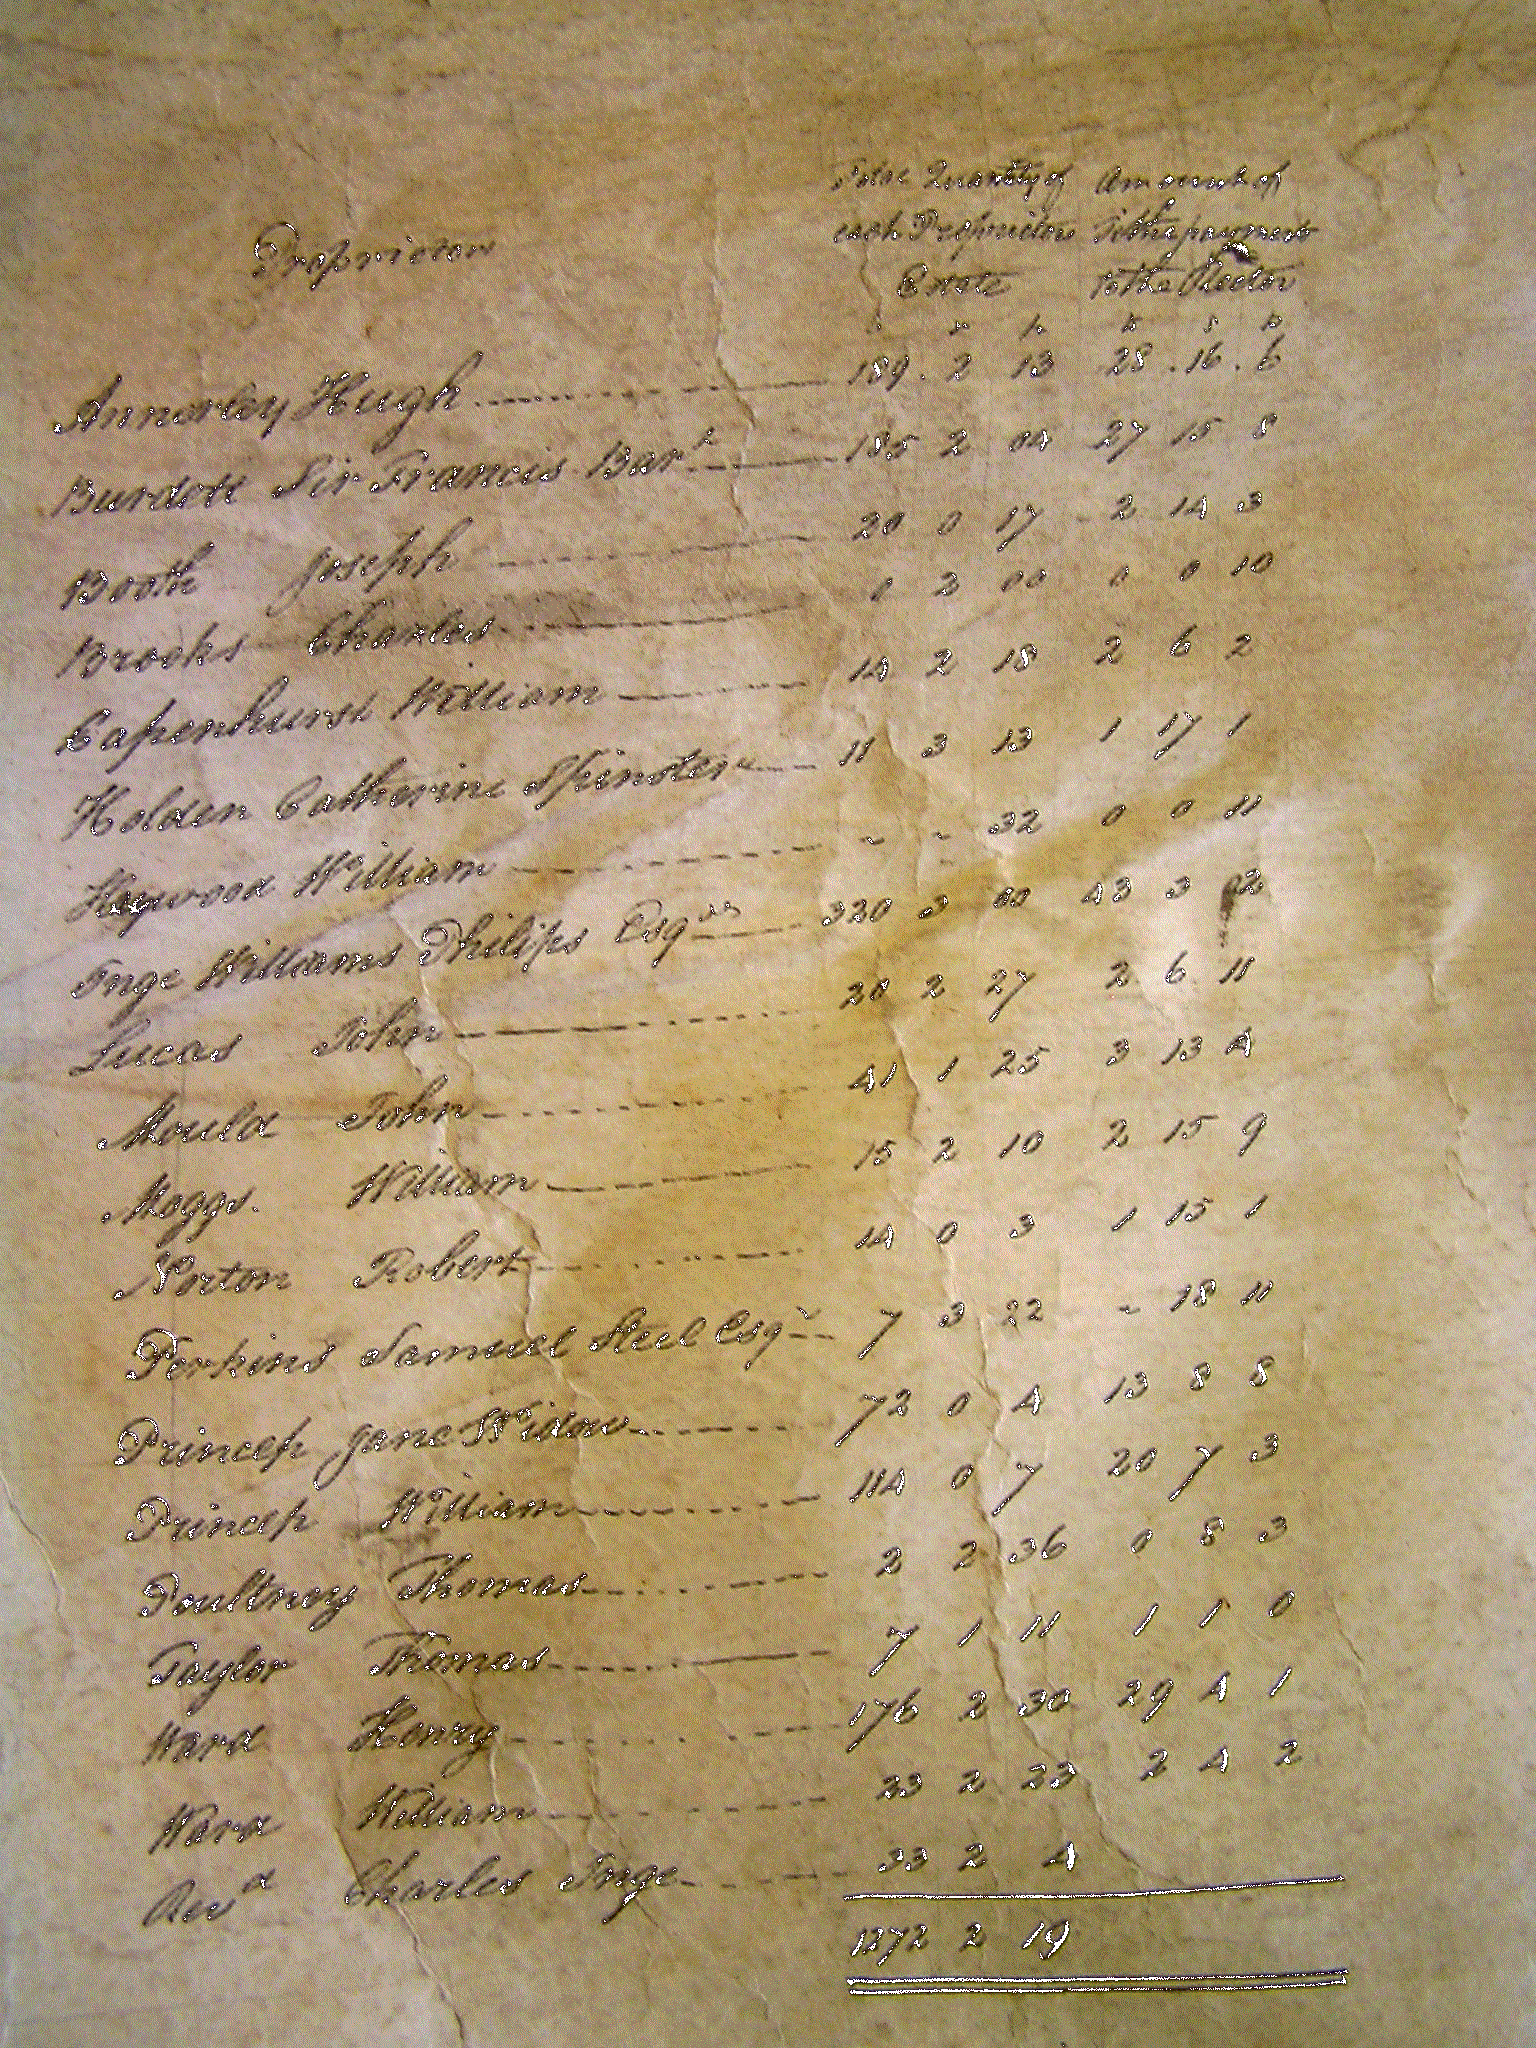 Proprietors
Total Quantity of each Proprietors Estate
Amount of Tithe payment to the Rector
Annesley Hugh 189 . 2 13 28 . 16 . 6
Burdett Sir Francis Bart 185 2 04 27 15 8
Booth Joseph 20 0 17 2 14 3
Brooks Charles 0 2 00 0 0 10
Capenhurst William 14 2 18 2 6 2
Holden Catherine Spinster 11 3 13 1 17 1
Hogwood William - - 32 0 0 11
Inge Williams Philips Esqr 320 3 00 43 3 02
Lucas John 20 2 27 2 6 11
Mould John 41 1 25 3 13 4
Moggs. William 15 2 10 2 15 9
Norton Robert 14 0 3 1 15 1
Perkins Samuel Steel Esqr 7 3 22 - 18 11
Princep Jane Widow 72 0 4 13 8 8
Princep William 114 0 7 20 7 3
Poultney Thomas 2 2 36 0 8 3
Taylor Thomas 7 1 11 1 1 0
Ward Henry 176 2 30 29 4 1
Ward William 23 2 33 2 4 2
Revd Charles Inge 33 2 4
1272 2 19